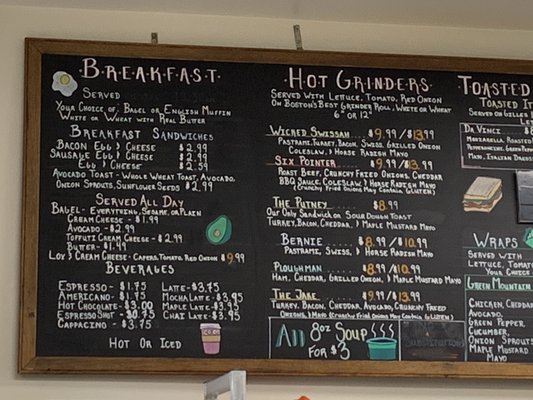 BREAKFAST
SERVED
YOUR CHOICE OF: BAGEL OR ENGLISH MUFFIN
WHITE OR WHEAT WITH REAL BUTTER
BREAKFAST SANDWICHES
BACON EGG & CHEESE $2.99
SAUSAGE EGG & CHEESE $2.99
EGG & CHEESE $2.99
AVOCADO TOAST - WHOLE WHEAT TOAST, AVOCADO,
ONION SPROUTS, SUNFLOWER SEEDS $2.99
SERVED ALL DAY
BAGEL - EVERYTHING, SESAME, OR PLAIN
CREAM CHEESE - $1.99
AVOCADO - $2.99
TOFUTTI CREAM CHEESE - $2.99
BUTTER - $1.49
LOX & CREAM CHEESE - CAPERS, TOMATO, RED ONION $9.99
BEVERAGES
ESPRESSO - $1.75
AMERICANO - $1.75
HOT CHOCOLATE - $3.00
ESPRESSO SHOT - $0.75
CAPPACINO - $3.75
LATTE - $3.75
MOCHA LATTE - $3.95
MAPLE LATTE - $3.95
CHAI LATTE - $3.95
HOT OR ICED
HOT GRINDERS
SERVED WITH LETTUCE, TOMATO, RED ONION
ON BOSTON'S BEST GRINDER ROLL, WHITE OR WHEAT
6" OR 12"
WICKED SWISSAH $9.99 / $13.99
PASTRAMI, TURKEY, BACON, SWISS, GRILLED ONION
COLESLAW & HORSE RADISH MAYO
SIX POINTER $9.99 / $13.99
ROAST BEEF, CRUNCHY FRIED ONIONS, CHEDDAR
BBQ SAUCE, COLESLAW & HORSE RADISH MAYO
(CRUNCHY FRIED ONIONS MAY CONTAIN GLUTEN)
THE PUTNEY $8.99
OUR ONLY SANDWICH ON SOUR DOUGH TOAST
TURKEY, BACON, CHEDDAR, & MAPLE MUSTARD MAYO
BERNIE $8.99 / $10.99
PASTRAMI, SWISS, & HORSE RADISH MAYO
PLOUGHMAN $8.99 / $10.99
HAM, CHEDDAR, GRILLED ONION, & MAPLE MUSTARD MAYO
THE JAKE $9.99 / $13.99
TURKEY, BACON, CHEDDAR, AVOCADO, CRUNCHY FRIED
ONIONS, & MAYO (CRUNCHY FRIED ONIONS MAY CONTAIN GLUTEN)
ALL 8OZ SOUP
FOR $3
SUBSTITUTIONS
TOASTED
TOASTED IT
SERVED ON GILLES
LE
DA VINCI $8
MOZZARELLA, ROASTED
PEPPERONCINI, GREEN PEPPER
MAYO, ITALIAN DRESS
WRAPS
SERVED WITH
LETTUCE, TOMATO
YOUR CHOICE
GREEN MOUNTAIN
CHICKEN, CHEDDAR
AVOCADO,
GREEN PEPPER,
CUCUMBER,
ONION, SPROUTS
MAPLE MUSTARD
MAYO